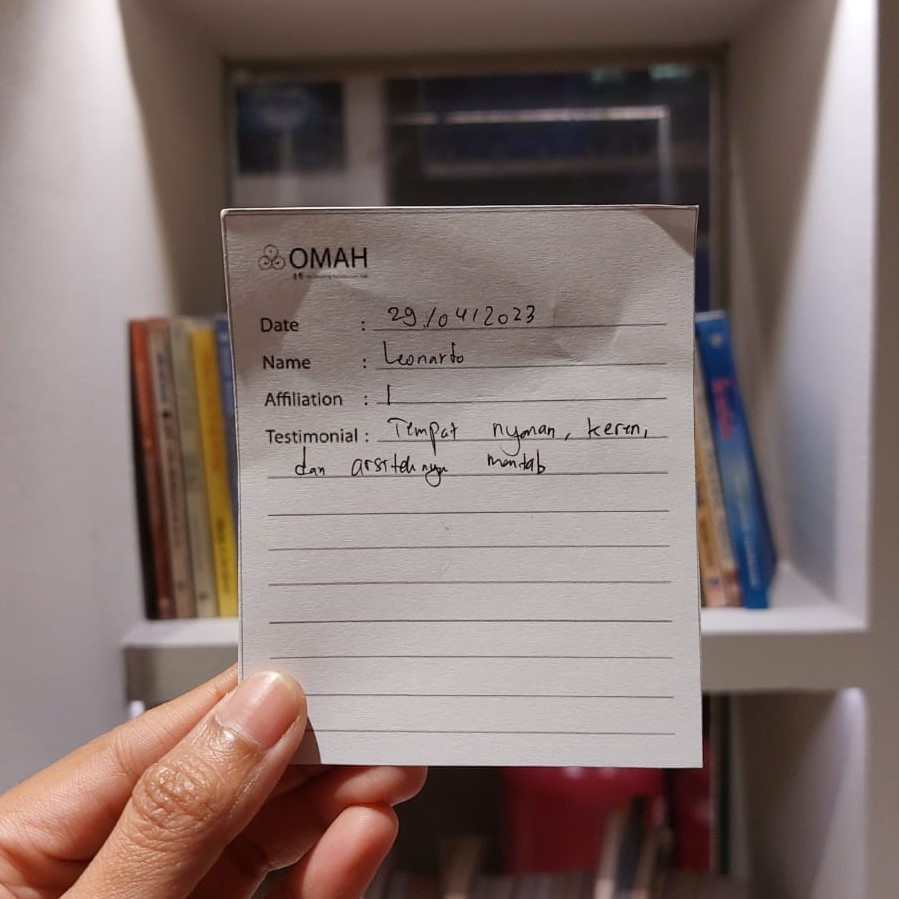 OMAH
Date : 29/04/2023
Name : Leonardo
Affiliation : |
Testimonial : Tempat nyaman, keren,
dan arsiteknya mantab